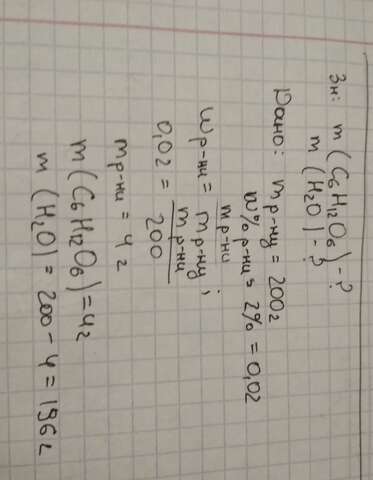 Зн: m (C₆H₁₂O₆) - ?
m (H₂O) - ?
Дано: mр-ну = 200г
w% р-ни = 2% = 0,02
wр-ни = mр-ни / mр-ну ;
0,02 = mр-ни / 200
mр-ни = 4 г
m (C₆H₁₂O₆) = 4г
m (H₂O) = 200 - 4 = 196г